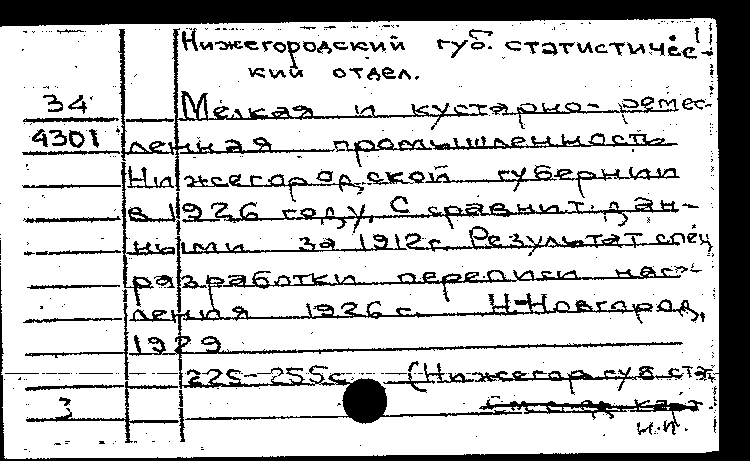 Нижегородский губ. статистичес-
кий отдел.
34 Мелкая и кустарно-ремес-
4301 ленная промышленность
Нижегородской губернии
в 1926 году. С сравнит. дан-
ными за 1912 г. Результат спец
разработки переписи насе-
ления 1926 г. Н-Новгород,
1929
225-255с (Нижегор губ стат
3 См след карт.
н.п.